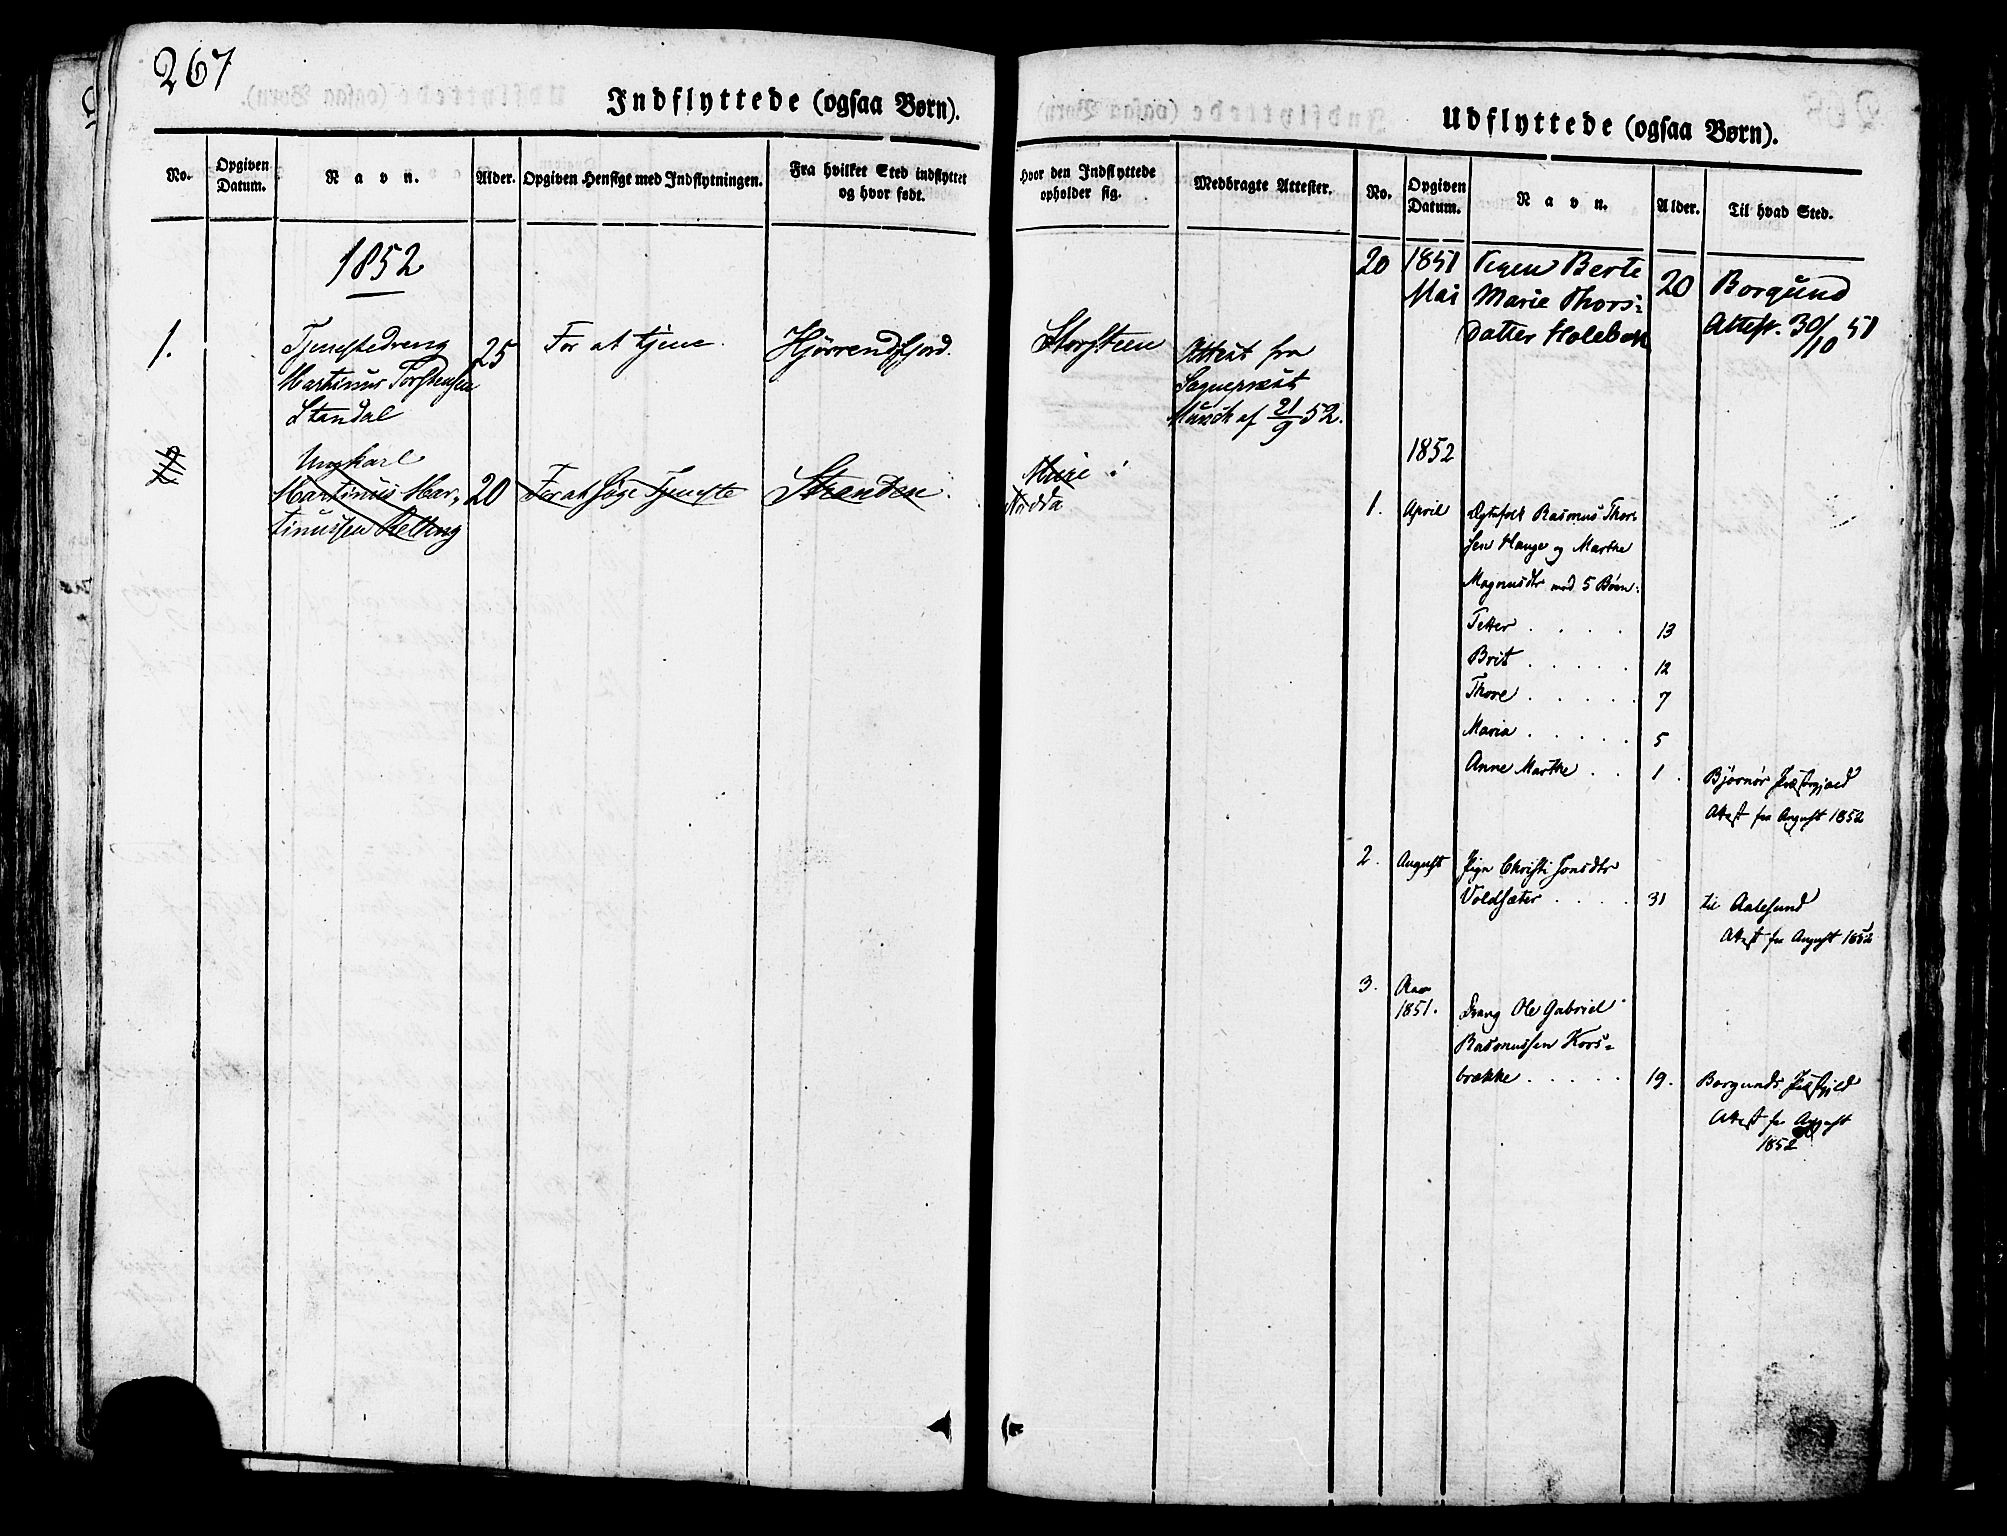 267
Indflyttede (ogsaa Børn).
No.
Opgiven Datum.
Navn.
Alder.
Opgiven Hensigt med Indflytningen.
Fra hvilket Sted indflyttet og hvor født.
1852
1.
Tjenestedreng
Martinus Torstensen
Standal
25
For at tjene.
Hjørrendfjord.
Ungkarl
Martinus Mar-
tinussen
20
For at søge Tjeneste
Stranden.
Udflyttede (ogsaa Børn).
Hvor den Indflyttede opholder sig.
Medbragte Attester.
No.
Opgiven Datum.
Navn.
Alder.
Til hvad Sted.
Storsteen
Attest fra
Sognepræst
Münch af 21/9 52.
Nedda
20
1851
Mai
Pigen Berte
Marie Thors=
datter Holebak
20
Borgund
Attest. 30/10 51
1852
1.
April
Ægtefolk Rasmus Thor-
sen Hauge og Marthe
Magnusdtr med 5 Børn:
Petter . . . . 13
Brit . . . . . 12
Thore . . . . . 7
Maria . . . . . 5
Anne Marthe . . 1.
Bjørnør Præstegjæld
Attest fra August 1852
2.
August
Pige Christi Jonsdtr
Voldsæter . . . . 31
til Aalesund
Attest fra August 1852
3.
Aar
1851.
Dreng Ole Gabriel
Rasmussen Kors=
brække . . . . . 19.
Borgunds Præstgjeld
Attest fra August
1852